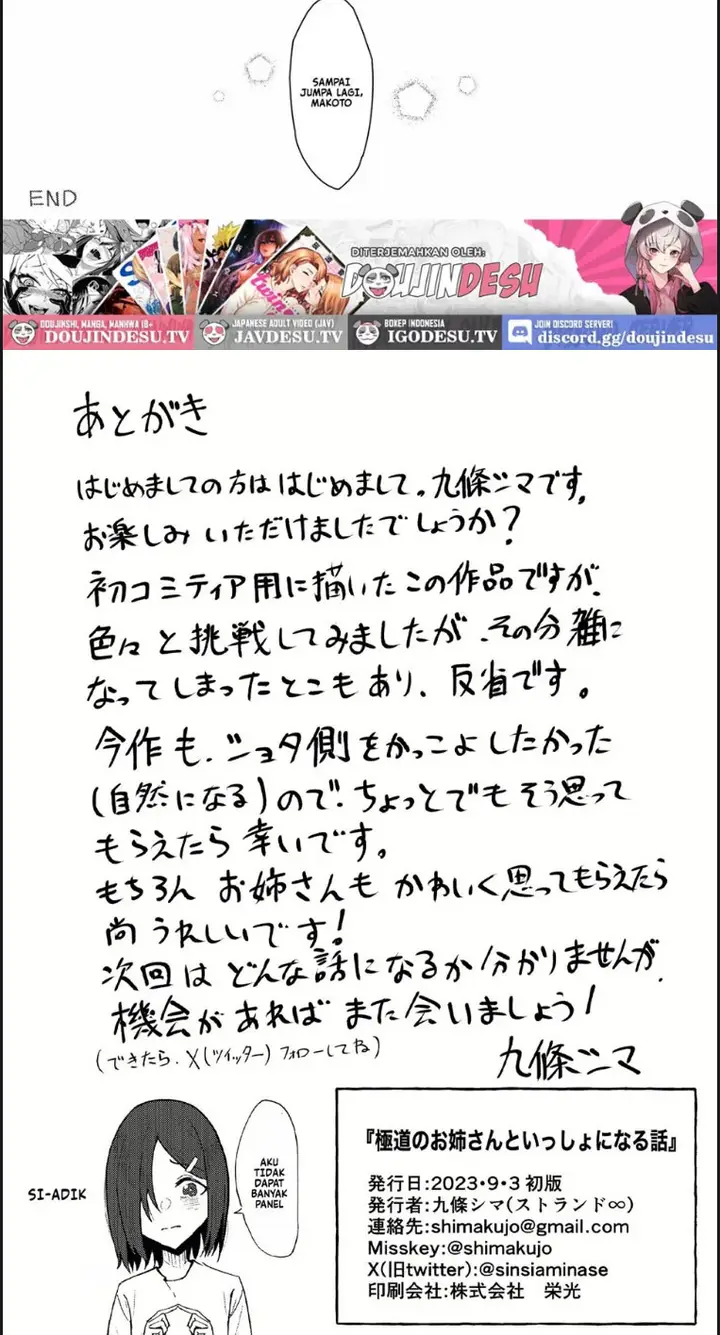 SAMPAI
JUMPA LAGI,
MAKOTO
END
DITERJEMAHKAN OLEH:
DOUJINDESU
DOUJINSHI, MANGA, MANHWA 18+
DOUJINDESU.TV
JAPANESE ADULT VIDEO (JAV)
JAVDESU.TV
BOKEP INDONESIA
IGODESU.TV
JOIN DISCORD SERVER!
discord.gg/doujindesu
あとがき
はじめましての方は はじめまして。九條シマです。
お楽しみ いただけましたでしょうか?
初コミティア用に描いたこの作品ですが、
色々と挑戦してみましたが、その分 雑に
なってしまったとこもあり、反省です。
今作も、ショタ側をかっこよしたかった
(自然になる)ので、ちょっとでもそう思って
もらえたら 幸いです。
もちろん お姉さんも かわいく思ってもらえたら
尚 うれしいです!
次回は どんな話になるか分かりませんが、
機会があれば また会いましょう!
(できたら、X(ツイッター) フォローしてね)
九條シマ
SI-ADIK
AKU
TIDAK
DAPAT
BANYAK
PANEL
『極道のお姉さんといっしょになる話』
発行日:2023・9・3 初版
発行者:九條シマ(ストランド∞)
連絡先:shimakujo@gmail.com
Misskey:@shimakujo
X(旧twitter):@sinsiaminase
印刷会社:株式会社 栄光